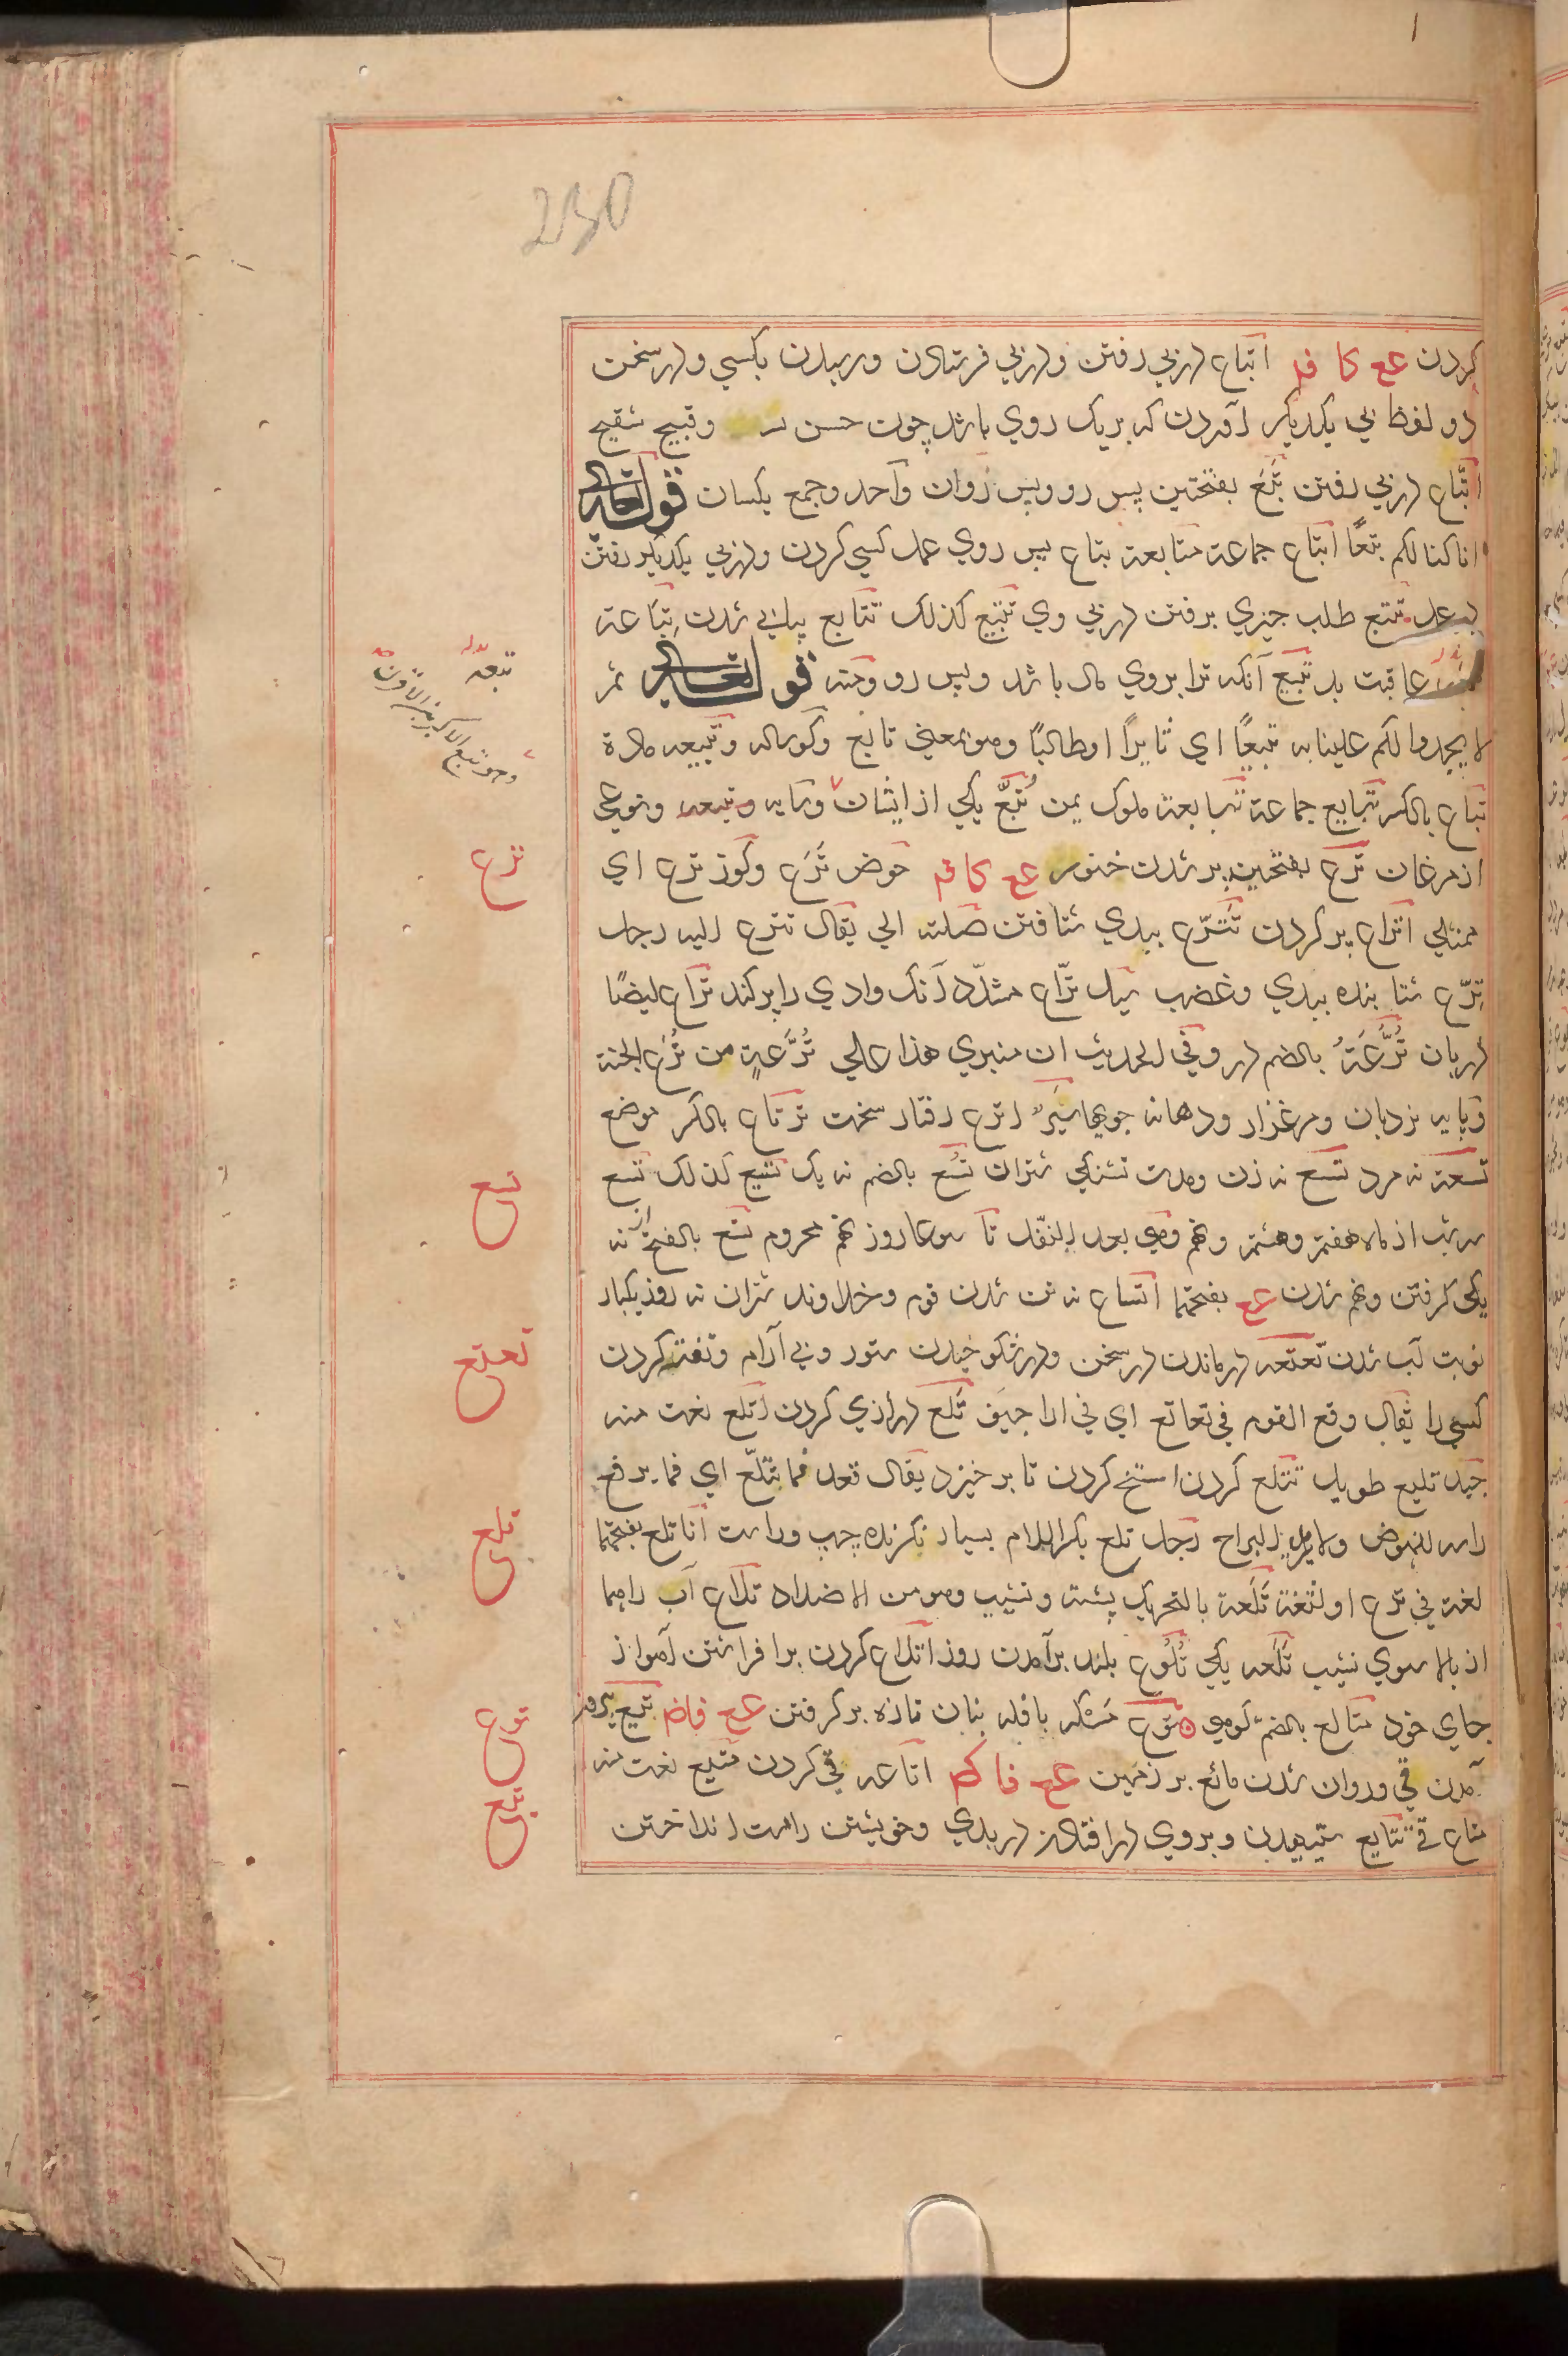 230
کردن عع کا فم اتباع درپی رفتن ودرپی فرستادن ورسیدن بکسی ودر سخن
دو لفظ پی یکدیکر آوردن که بریک روی باشد چون حسن بسن وقبیح شقیح
اتباع درپی رفتن تبع بفتحتین پس رو وپس روان واحد وجمع یکسان قوله تعالی
انا کنا لکم تبعًا اتباع جماعة متابعة تباع پس روی عمل کسی کردن ودرپی یکدیکر رفتن
تتبع طلب چیزی برفتن درپی وی تتبیع کذلک تتابع پیاپی شدن تباعة
عاقبت بد تبیع آنکه ترا بروی مال باشد وپس رو قوله تعالی ثم
لا یجدوا لکم علینا به تبیعًا ای ثایرًا او طالبًا وهو بمعنی تابع وکوساله وتبیعه ماده
تباع بالکسر تبایع جماعة تبابعة ملوک یمن تبّع یکی از ایشان وسایه ونوعی
از مرغان ترع بفتحتین پر شدن خنور عع کا فم حوض ترع وکوز ترع ای
ممتلی اتراع پر کردن تترّع ببدی شتافتن صلته الی یقال تترع الیه رجل
ترع شتابنده ببدی وغضب سیل ترّاع مشدّد آنک وادی را پر کند تراع ایضًا
دربان ترعة بالضم در وفی الحدیث ان منبری هذا علی ترعة من ترع الجنة
وپایه نردبان ومرغزار ودهانه جوی اترع رفتار سخت ترتاع بالکسر موضع
تسعة نه مرد تسع نه زن ومدت تشنکی شتران تسع بالضم نه یک تسیع کذلک تسع
سه شب از ماه هفتم وهشتم ونهم وهی بعد النفل تاسوعا روز نهم محرم تسع بالفتح از نه
یکی کرفتن ونهم شدن عع بفتحهما اتساع نه تن شدن قوم وخداوند شتران نه روز یکبار
نوبت آب شدن تعتعه درماندن در سخن ودر شکوخیدن ستور وبی آرام کردن
کسی را یقال وقع القوم فی تعاتع ای فی اراجیف تلع درازی کردن اتلع نعت منه
جید تلیع طویل تتلع کردن استخ کردن تا برخیزد یقال قعد فما یتتلّع ای فما یرفع
راسه للنهوض ولا یرید البراح رجل تلع بکسر اللام بسیار نکرنده چپ وراست اناتلع بفتحهما
لغة فی ترع او لثغة تلعة بالتحریک پشته ونشیب وهو من الاضداد تلاع آب راهها
از بالا سوی نشیب تلعه یکی تلوع بلند برآمدن روز اتلاع کردن برافراشتن آهو از
جای خود متالع بالضم کوهی توع مسکه یا فله بنان تازه برکرفتن عع فاضم تیع بیرون
آمدن قی وروان شدن مائع بر زمین عع فا کم اتاعه قی کردن متیع نعت منه
متاع قی تتایع ستیهیدن وبروی درافتادن در بدی وخویشتن راست انداختن
تبعه
ترع
تسع
تعتع
تلع
توع
تیع